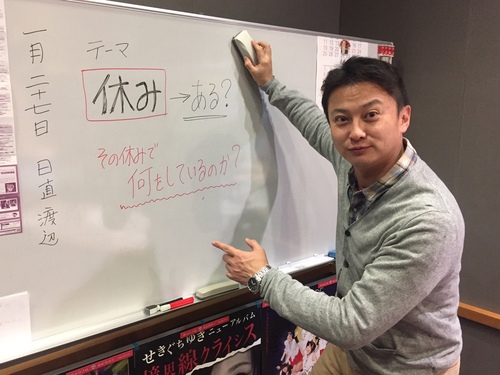 一月二十七日 日直 渡辺
テーマ
休み→ある?
その休みで
何をしているのか?
せきぐちゆき ニューアルバム
境界線クライシス